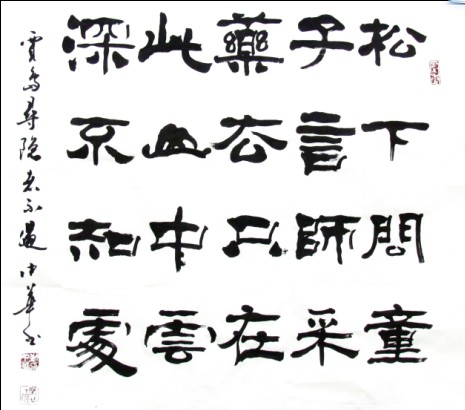 松下問童
子言師采
藥去只在
此山中雲
深不知處
賈島尋隱者不遇